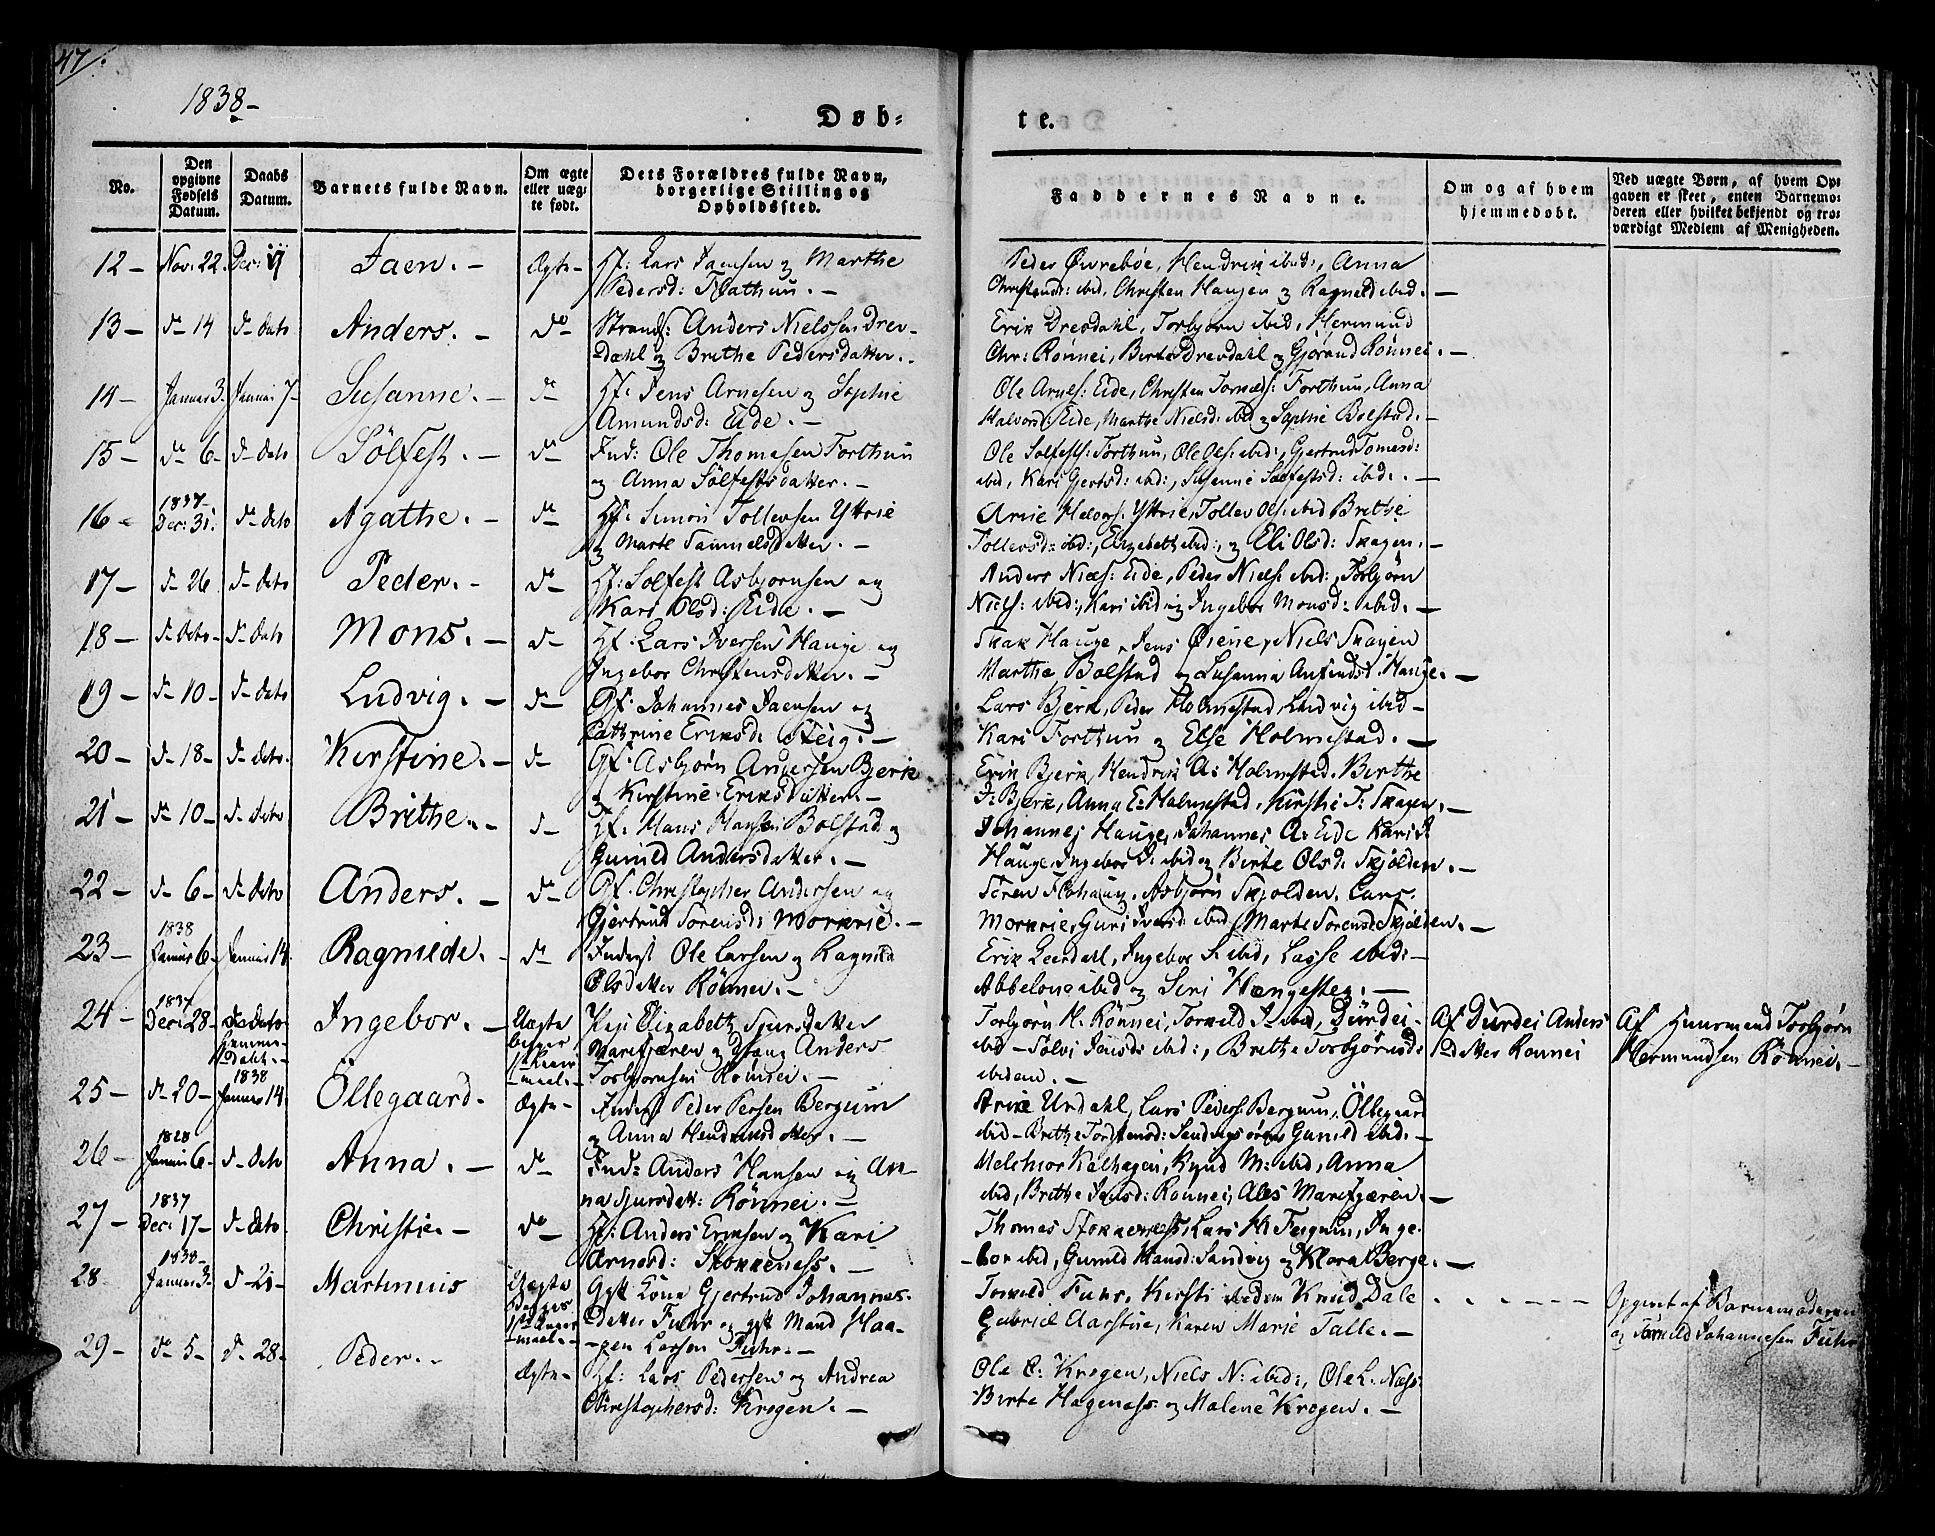 47.
1838-
Døb-
te.
No.
Den opgivne Fødsels Datum.
Daabs Datum.
Barnets fulde Navn.
Om ægte eller uægte født.
Dets Forældres fulde Navn, borgerlige Stilling og Opholdssted.
Faddernes Navne.
Om og af hvem hjemmedøbt.
Ved uægte Børn, af hvem Opgaven er skeet, enten Barnemoderen eller hvilket bekjendt og troværdigt Medlem af Menigheden.
12- Nov: 22. Jaen.- Ægte- Gf: Lars Jaensen og Marthe
Pedersd:
Peder Øvrebøe, Hendrik ibid:, Anna
ibid, Christen Haugen og Ragnild ibid.-
13- d- 14 d- dato Anders.- do Strands: Anders Nielssen Drev-
dahl og Brithe Pedersdatter.-
Erik Drevdahl, Torbjørn ibid, Hermund
Chr: Rönnei, Berte Drevdahl og Gjørand Rönnei.-
14- Januar 3. Januar 7- Susanne.- d- Jens Arnesen og Sophie
Amundsd: Eide.-
Ole Arnes: Eide, Christen Forthun, Anna
Halvorsd: Eide, Marthe Nielsd: ibid og Sophie Bolstad.-
15- d- 6- d- dato Sölfest.- d- Ind: Ole Thomesen Forthun
og Anna Sölfestsdatter.-
Ole Solfests: Forthun, Ole Ols: ibid:, Gjertrud Tomesd:
ibid, Kari Gjertsd: ibid:, Susanne Solfestsd: ibid:.-
16- 1837- Dec: 31. d- dato Agathe.- d- Simon Tollevsen Yttrie
og Marte Samuelsdatter.-
Arne Halvors: Yttrie, Tollev Ols: ibid Brithe
Tollevsd: ibid:, Elizabeth ibid:, og Eli Olsd: Skagen.-
17- d- 26 d- dato Peder.- d- Solfest Asbjørnsen og
Kari Olsd: Eide.-
Anders Niels: Eide, Peder Niels: ibid:, Torbjørn
Niels: ibid:, Kari ibid og Ingebor Monsd: ibid.-
18- d- dato- d- dato Mons.- d- Lars Iversen Hauge og
Ingebor Christensdatter.-
Hauge, Jens Øiene, Niels Skagen
Marthe Bolstad og Susanna Anfindsd: Hauge.-
19- d- 10- d- dato Ludvig.- d- Gf: Johannes Jaensen og
Cathrine Eriksd: Steig.-
Lars Bjerk, Peder Holmestad, Ludvig ibid-
Kari Forthun og Else Holmestad.-
20- d- 18- d- dato. Kirstine.- d- Gf: Asbjørn Andersen Bjerk
og Kirstine Eriksdatter.-
Erik Bjerk, Hendrik A: Holmestad, Birthe
J: Bjerk, Anna E: Holmestad, Kirsti T: Skagen.-
21- d- 10- d- dato Brithe.- d- Hans Hansen Bolstad og
Gunild Andersdatter.-
Johannes Hauge, Johannes A: Eide Kari J
Hauge, Ingebor J: ibid og Birte Olsd: Skjolden.-
22- d- 6- d- dato Anders.- d- Gf: Christopher Andersen og
Gjertrud Sorensd: Morkrie.-
Sören Flohaug, Asbjørn Skjolden, Lars
Morkrie, Guri ibid, Marte Sorensd: Skjolden.-
23- 1838 Januar 6- Januar 14 Ragnilde.- d- Inderst Ole Larsen og Ragnild
Olsdatter Rönnei.-
Erik Leerdahl, Ingebor ibid, Lasse ibid:-
Abbelone ibid og Seri Hængesten.-
24- 1837 Dec: 28- dato Ingebor.- Uægte Pige Elizabeth Sjursdatter
Marifjæren og Anders
Torbjørnsen Rönnei.-
Torbjørn H. Rönnei, Torkild ibid, Dürdei-
ibid- Sølvi Jensd: ibid:, Brithe Torbjørnsd:
ibidem.-
Af Dürdei Anders
datter Ronnei
Af Huusmand Torbjørn
Hermundsen Rönnei.-
25- d- 20- 1838 Januar 14. Öllegaard. Ægte- Inderst Peder Persen Bergum
og Anna
Urdahl, Lars Peders: Bergum, Öllegaard
ibid- Brithe Torstensd: Gunild ibid.-
26- Januar 6- d- dato Anna.- d- Ind: Anders Hansen og An-
na Sjursdatt: Rönnei.-
Melchior Kalhagen, M: ibid, Anna
ibid, Brithe Jensd: Ronnei, Ales Marifjæren.-
27- 1837 Dec: 17- d- dato. Christie.- d- Anders Eriksen og Kari
Arnesd: Stokkeness.-
Thomas Stokkeness, Lars Inge-
bor ibid, Gunild Hansd: Sandvig og Klora Berge.-
28 1838- Januar 3- d- 21- Martinus Uægte Gift Kone Gjertrud Johannes-
datter Fuhr og gift Mand Haa-
gen Larsen Fuhr.-
Torkild Fuhr, Kirsti ibidem Knud Dale
Gabriel Aarstue, Karen Marie Talle.-
Opgivet af Barnemoderen
og Torkild Johannesen Fuhr
29- d- 5- d- 28- Peder.- Ægte- Lars Pedersen og Andrea
Christophersd: Krogen.-
Ole Krogen, Niels N: ibid:, Ole L. Næss
Birte Hageness og Malene Krogen.-